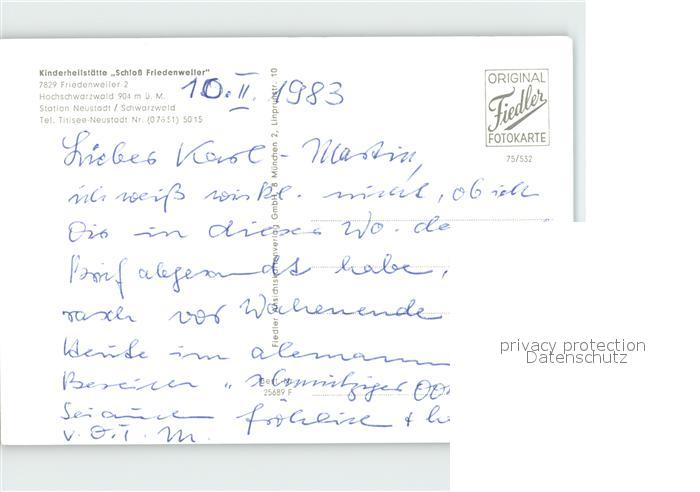 Kinderheilstätte „Schloß Friedenweiler"
7829 Friedenweiler 2
Hochschwarzwald 904 m ü. M.
Station Neustadt / Schwarzwald
Tel. Titisee-Neustadt Nr. (07651) 5015
10. II. 1983
ORIGINAL
Fiedler
FOTOKARTE
75/532
Lieber Karl-Martin,
ich weiß wirkl. nicht, ob ich
Dir in dieser Wo. de
Brief abgesandt habe,
rasch vor Wochenende
Heute im alemann
Seid
fröhlich + h
v. D. T. M.
Fiedler Ansichtskartenverlag GmbH, 8 München 2, Linprunstr. 10
Best. Nr.
25689 F
privacy protection
Datenschutz